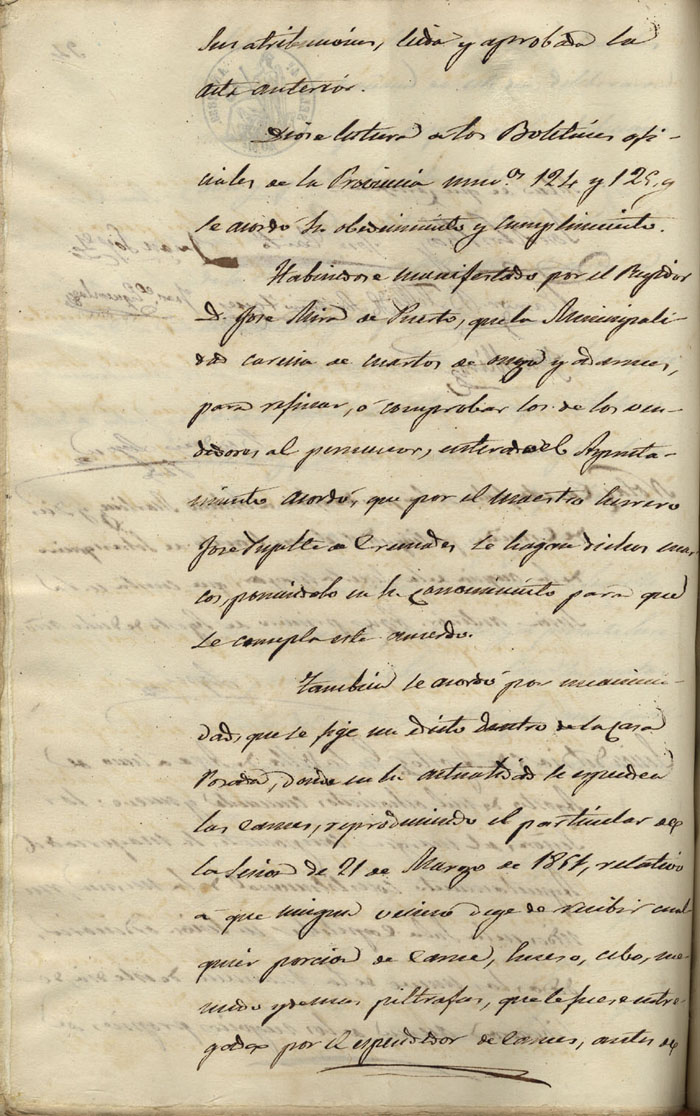 sus atribuciones, leida y aprobada la
acta anterior.
Diose lectura a los Boletines ofi-
ciales de la Provincia numos 124 y 125, y
se acordó su obedecimiento y cumplimiento.
Habiendose manifestado por el Regidor
D. Jose Mira de Puerto, que la Municipali
dad carecia de cuartos de onza y adarmes,
para refinar, ó comprobar los de los ven-
dedores al pormenor, enterado el Ayunta-
miento acordó, que por el maestro herrero
Jose de Crevades se hagan dichos mar
cos, poniendolo en su conocimiento para que
se cumpla este acuerdo.
Tambien se acordó por unanimi-
dad, que se fige un edicto dentro de la Casa
Posada, donde en la actualidad se espenden
las carnes, reproduciendo el particular de
la sesion de 21 de Marzo de 1864, relativo
á que ningun vecino dege de recibir cual
quier porcion de carne, hueso, cebo, me-
nudo y demas piltrafas, que le fuese entre-
gada por el espendedor de carnes, antes de